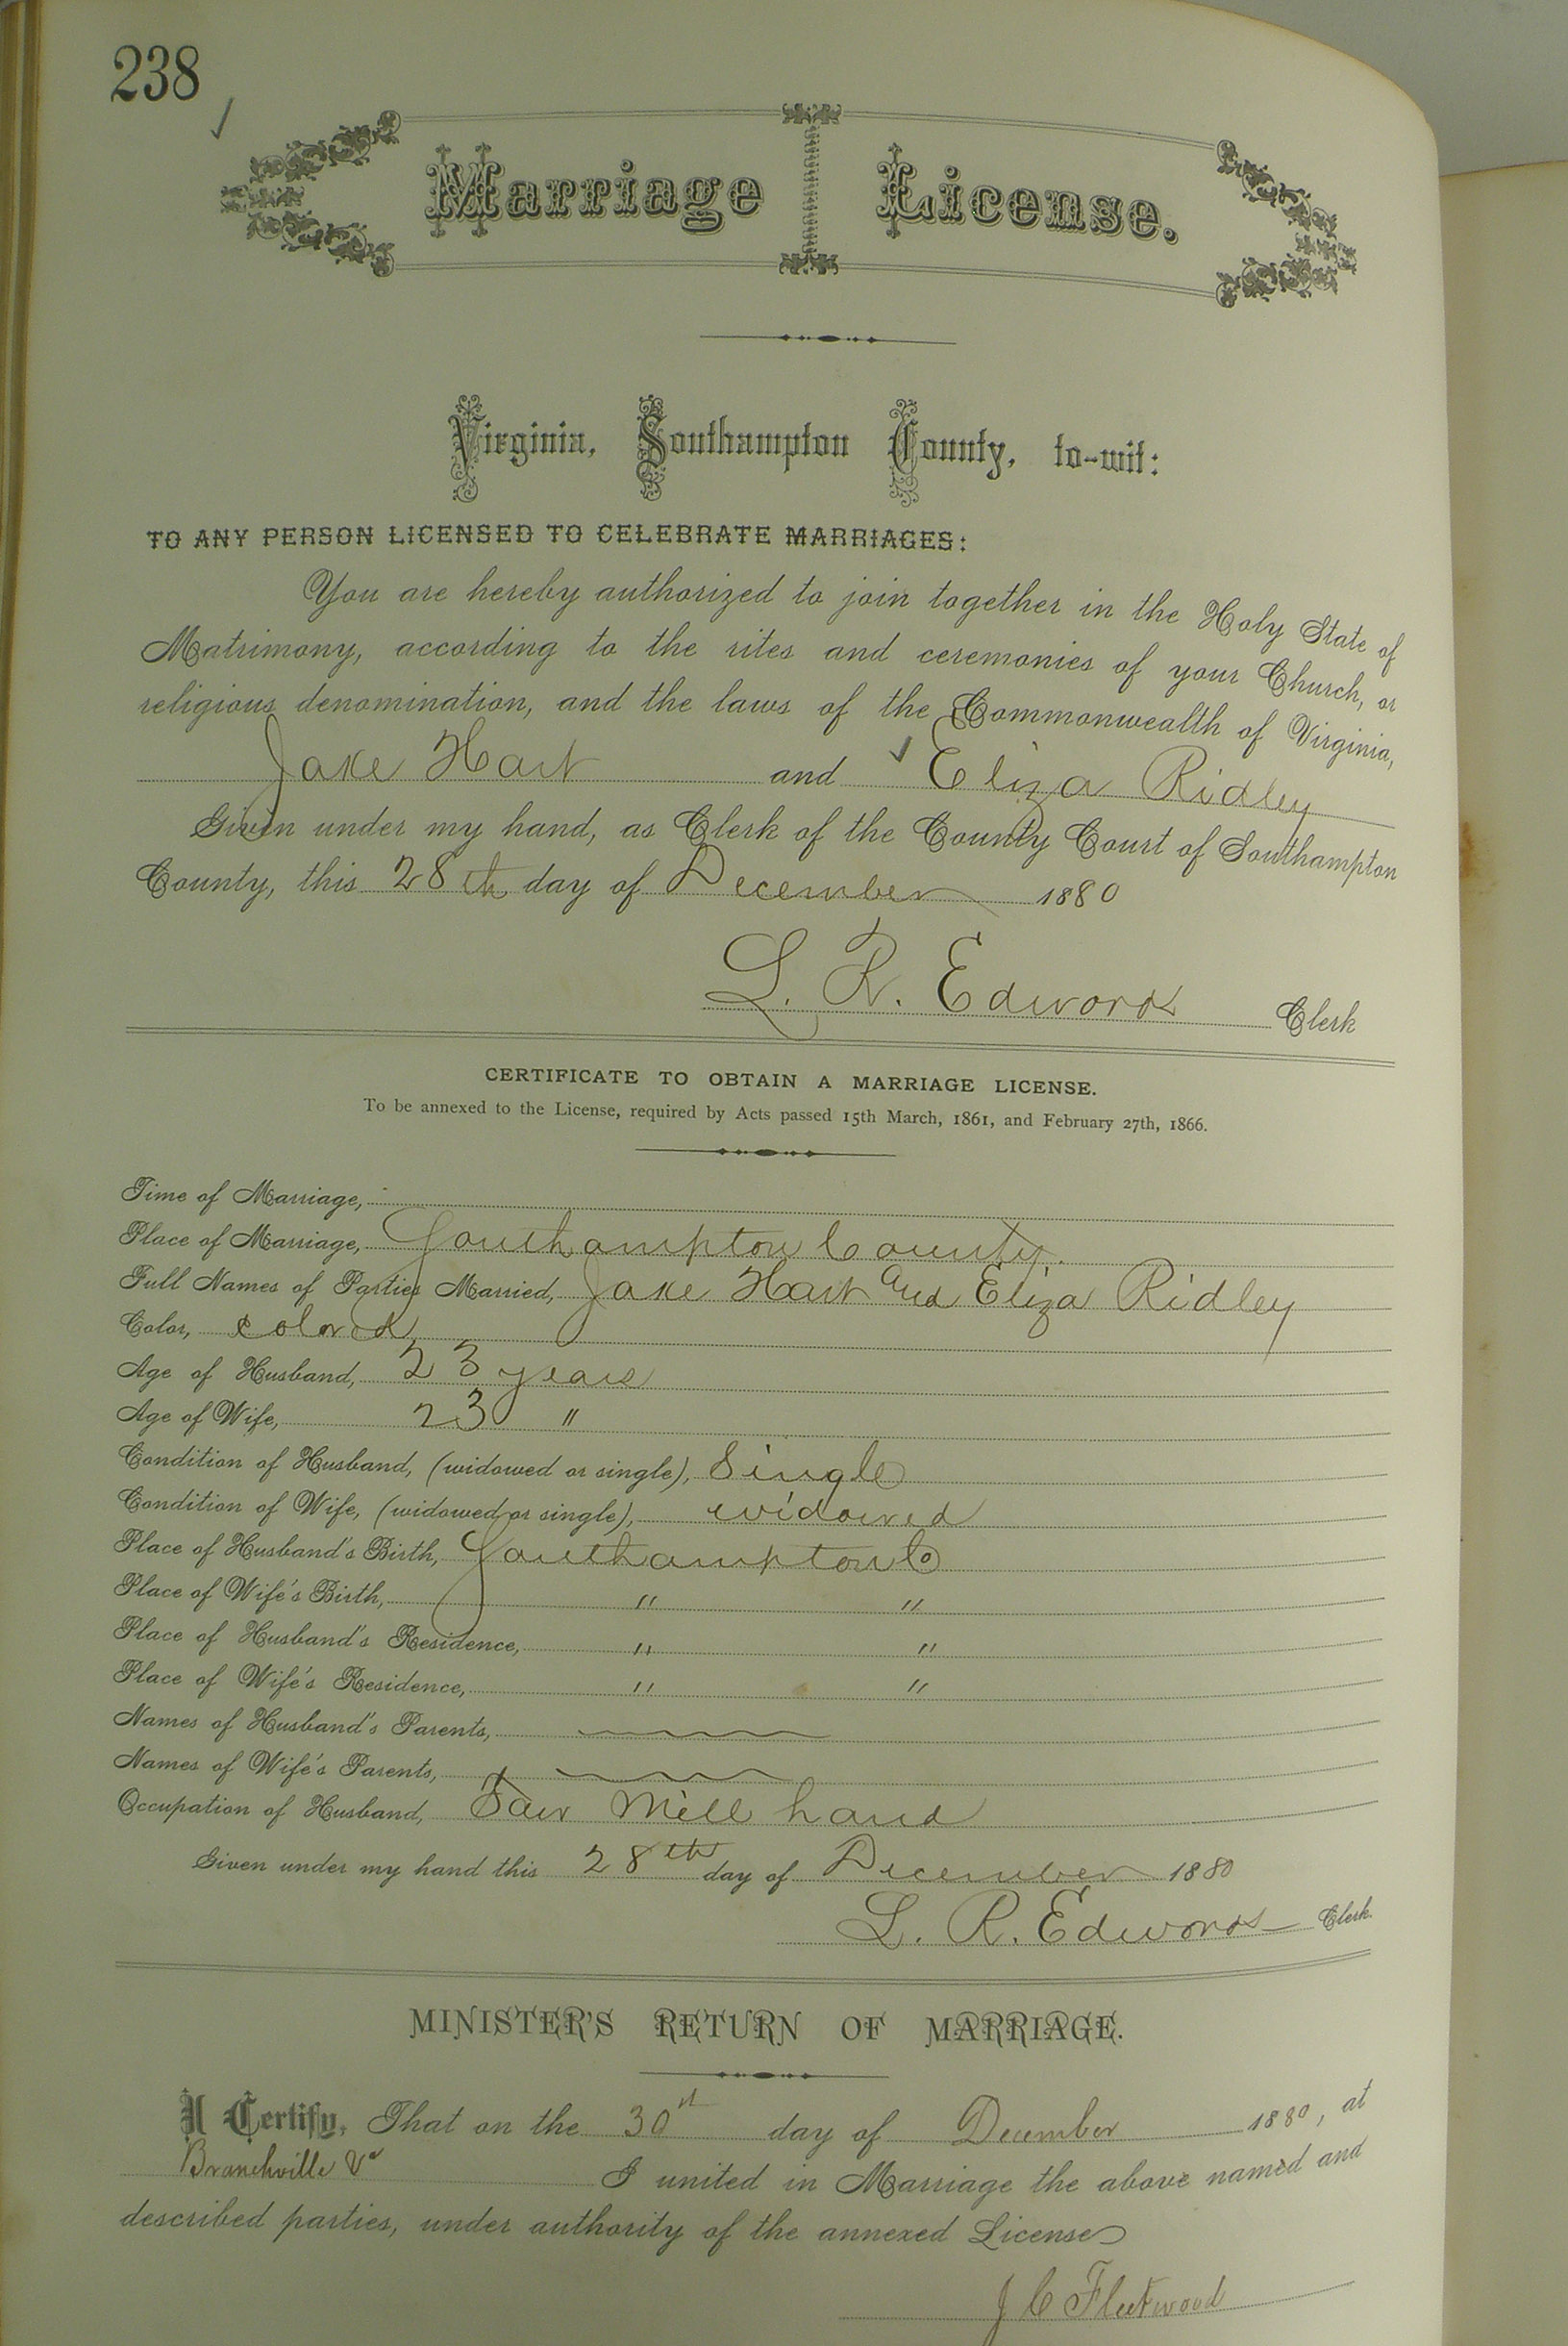 238
Marriage License.
Virginia, Southampton County, to-wit:
TO ANY PERSON LICENSED TO CELEBRATE MARRIAGES:
You are hereby authorized to join together in the Holy State of
Matrimony, according to the rites and ceremonies of your Church, or
religious denomination, and the laws of the Commonwealth of Virginia,
Jake Hart and Eliza Ridley
Given under my hand, as Clerk of the County Court of Southampton
County, this 28th day of December 1880
L. R. Edwards Clerk
CERTIFICATE TO OBTAIN A MARRIAGE LICENSE.
To be annexed to the License, required by Acts passed 15th March, 1861, and February 27th, 1866.
Time of Marriage,
Place of Marriage, Southampton County.
Full Names of Parties Married, Jake Hart and Eliza Ridley
Color, colored
Age of Husband, 23 years
Age of Wife, 23 "
Condition of Husband, (widowed or single), Single
Condition of Wife, (widowed or single), widowed
Place of Husband's Birth, Southampton Co
Place of Wife's Birth, " "
Place of Husband's Residence, " "
Place of Wife's Residence, " "
Names of Husband's Parents,
Names of Wife's Parents,
Occupation of Husband, Saw Mill hand
Given under my hand this 28th day of December 1880
L. R. Edwards Clerk.
MINISTER'S RETURN OF MARRIAGE.
I Certify, That on the 30st day of December 1880, at
Branchville Va I united in Marriage the above named and
described parties, under authority of the annexed License
J C Fleetwood